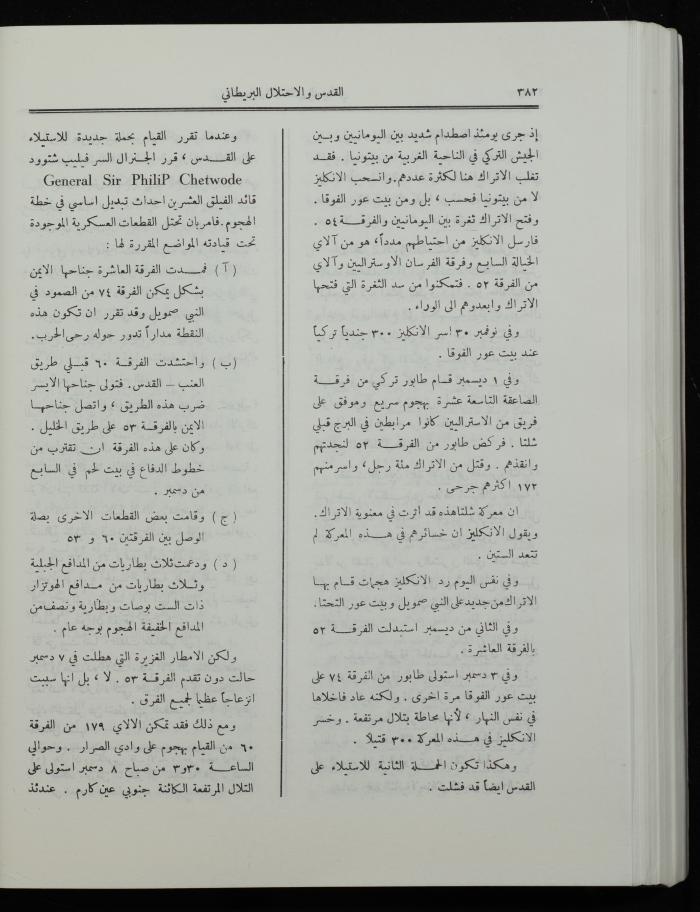 ٣٨٢
القدس والاحتلال البريطاني
إذ جرى يومئذ اصطدام شديد بين اليومانيين وبين
الجيش التركي في الناحية الغربية من بيتونيا . فقد
تغلب الاتراك هنا لكثرة عددهم. وانسحب الانكليز
لا من بيتونيا فحسب ، بل ومن بيت عور الفوقا .
وفتح الاتراك ثغرة بين اليومانيين والفرقة ٥٤ .
فارسل الانكليز من احتياطهم مدداً، هو من آلاي
الخيالة السابع وفرقة الفرسان الاوستراليين وآلاي
من الفرقة ٥٢ . فتمكنوا من سد الثغرة التي فتحها
الاتراك وابعدوهم الى الوراء .
وفي نوفمبر ٣٠ اسر الانكليز ٣٠٠ جندياً تركياً
عند بيت عور الفوقا .
وفي ١ ديسمبر قام طابور تركي من فرقة
الصاعقة التاسعة عشرة بهجوم سريع وموفق على
فريق من الاستراليين كانوا مرابطين في البرج قبلي
شلتا . فركض طابور من الفرقة ٥٢ لنجدتهم
وانقذهم . وقتل من الاتراك مئة رجل، واسر منهم
١٧٢ اكثرهم جرحى .
ان معركة شلتا هذه قد اثرت في معنوية الاتراك.
ويقول الانكليز ان خسائرهم في هذه المعركة لم
تتعد الستين .
وفي نفس اليوم رد الانكليز هجمات قام بها
الاتراك من جديد على النبي صمويل وبيت عور التحتا.
وفي الثاني من ديسمبر استبدلت الفرقة ٥٢
بالفرقة العاشرة .
وفي ٣ دسمبر استولى طابور من الفرقة ٧٤ على
بيت عور الفوقا مرة اخرى . ولكنه عاد فاخلاها
في نفس النهار ، لأنها محاطة بتلال مرتفعة . وخسر
الانكليز في هذه المعركة ٣٠٠ قتيلا .
وهكذا تكون الحملة الثانية للاستيلاء على
القدس ايضاً قد فشلت .
وعندما تقرر القيام بحملة جديدة للاستيلاء
على القدس ، قرر الجنرال السر فيليب شتوود
General Sir PhiliP Chetwode
قائد الفيلق العشرين احداث تبديل اساسي في خطة
الهجوم. فامر بان تحتل القطعات العسكرية الموجودة
تحت قيادته المواضع المقررة لها :
( آ ) فمدت الفرقة العاشرة جناحها الايمن
بشكل يمكن الفرقة ٧٤ من الصمود في
النبي صمويل وقد تقرر ان تكون هذه
النقطة مداراً تدور حوله رحى الحرب.
( ب ) واحتشدت الفرقة ٦٠ قبلي طريق
العنب – القدس. فتولى جناحها الايسر
ضرب هذه الطريق ، واتصل جناحها
الايمن بالفرقة ٥٣ على طريق الخليل .
وكان على هذه الفرقة ان تقترب من
خطوط الدفاع في بيت لحم في السابع
من دسمبر .
( ج ) وقامت بعض القطعات الاخرى بصلة
الوصل بين الفرقتين ٦٠ و ٥٣
( د ) ودعمت ثلاث بطاريات من المدافع الجبلية
وثلاث بطاريات من مدافع الهوتزار
ذات الست بوصات وبطارية ونصف من
المدافع الخفيفة الهجوم بوجه عام .
ولكن الامطار الغزيرة التي هطلت في ٧ دسمبر
حالت دون تقدم الفرقة ٥٣ . لا ، بل انها سببت
انزعاجاً عظيما لجميع الفرق .
ومع ذلك فقد تمكن الالاي ١٧٩ من الفرقة
٦٠ من القيام بهجوم على وادي الصرار . وحوالي
الساعة ٣٠و٣ من صباح ٨ دسمبر استولى على
التلال المرتفعة الكائنة جنوبي عين كارم . عندئذ